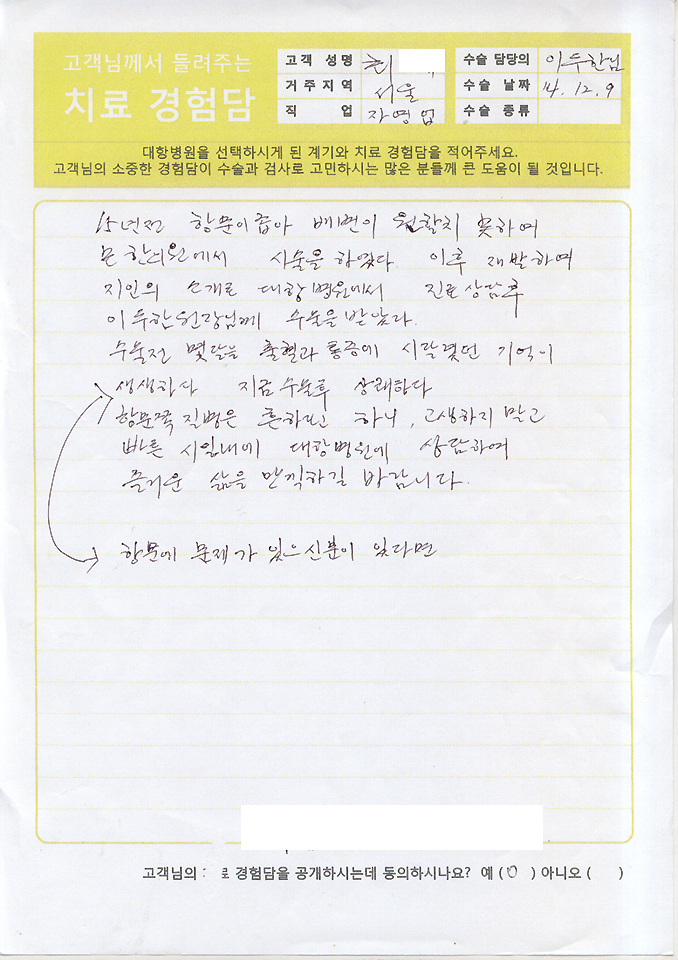 고객님께서 들려주는
치료 경험담
고객 성명 최
거주지역 서울
직 업 자영업
수술 담당의 이두한님
수술 날짜 14. 12. 9
수술 종류
대항병원을 선택하시게 된 계기와 치료 경험담을 적어주세요.
고객님의 소중한 경험담이 수술과 검사로 고민하시는 많은 분들께 큰 도움이 될 것입니다.
15년전 항문이 좁아 배변이 원활치 못하여
모 한의원에서 시술을 하였다 이후 재발하여
지인의 소개로 대항병원에서 진료상담후
이두한원장님께 수술을 받았다.
수술전 몇달을 출혈과 통증에 시달렸던 기억이
생생하다 지금 수술후 상쾌하다
항문쪽 질병은 흔하다고 하니, 고생하지 말고
빠른 시일내에 대항병원에 상담하여
즐거운 삶을 만끽하길 바랍니다.
항문에 문제가 있으신분이 있다면
고객님의 료 경험담을 공개하시는데 동의하시나요? 예 (O) 아니오 ( )